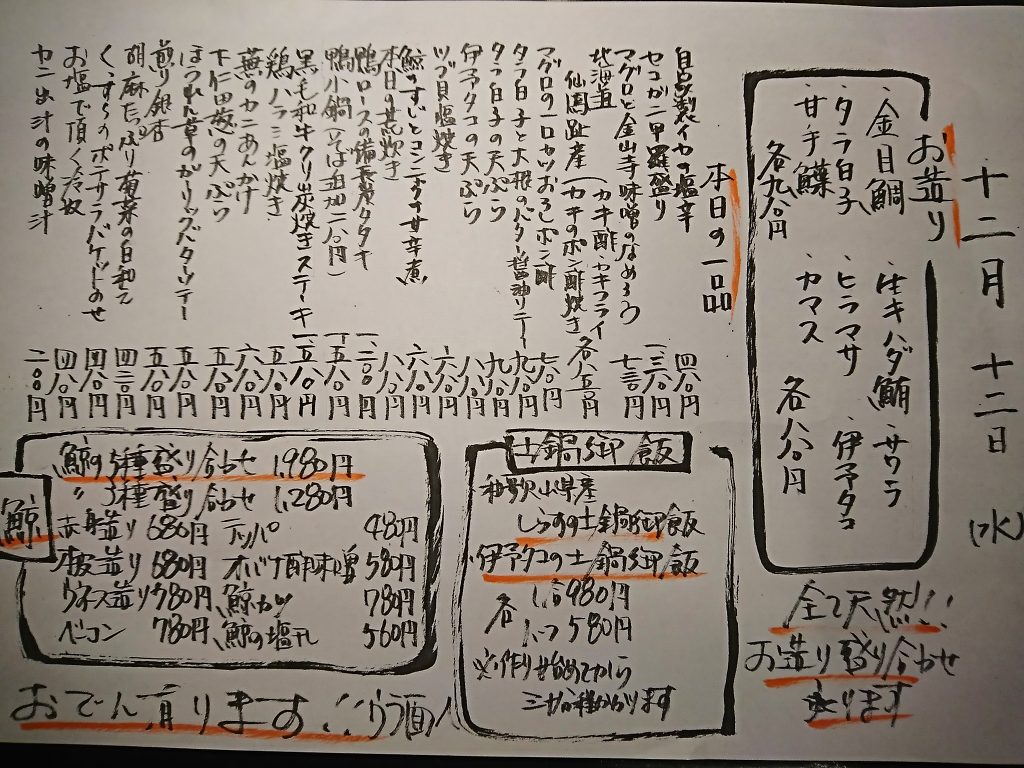 十二月 十二日 (水)
お造り
・金目鯛 ・生キハダ鮪 ・サワラ
・タラ白子 ・ヒラマサ ・伊予タコ
・甘手鰈 ・カマス 各八八〇円
各九八〇円
全て天然!!
お造り盛り合わせ
承ります
本日の一品
自家製イカの塩辛 四八〇円
セコガニ甲羅盛り 一、三八〇円
マグロと金山寺味噌のなめろう 七三〇円
北海道
仙鳳趾産 (カキ酢・カキフライ
カキのポン酢炊き 各八五〇円
マグロの一口カツおろしポン酢 七八〇円
タラ白子と大根のバター醤油ソテー 九八〇円
タラ白子の天ぷら 九八〇円
伊予タコの天ぷら 八八〇円
ツブ貝塩焼き 六八〇円
鯨のすじとコンニャクの甘辛煮 六八〇円
本日の煮炊き 八八〇円
鴨ロースの備長炭タタキ 一、二〇〇円
鴨小鍋(そば追加二八〇円) 一、五八〇円
黒毛和牛クリ炭焼きステーキ 一、五八〇円
鶏ハラミ塩焼き 五八〇円
蕪のカニあんかけ 六八〇円
下仁田葱の天ぷら 五八〇円
ほうれん草のガーリックバターソテー 五八〇円
煎り銀杏 五八〇円
胡麻たっぷり菊菜の白和え 四三〇円
くずし豆のポテサラバゲットのせ 四八〇円
お塩で頂く冷奴 四八〇円
カニ出汁の味噌汁 二〇〇円
土鍋御飯
和歌山県産
しらすの土鍋御飯
伊予タコの土鍋御飯
各 980円
580円
※作り始めてから
三十分程かかります
鯨
鯨の5種盛り合わせ 1,980円
〃 3種盛り合わせ 1,280円
赤身造り 680円 テッパ 480円
本皮造り 680円 オバケ酢味噌 580円
ウネス造り 780円 鯨カツ 780円
ベーコン 780円 鯨の塩干し 560円
おでん有ります